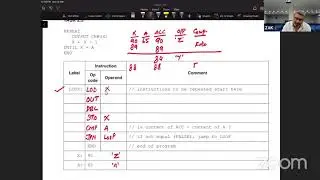 REPEAT
OUTPUT CHR(X)
X = X - 1
UNTIL X = A
END
X A ACC OP
90 65 90 Z
89 89
Label Instruction Comment
Op code Operand
LOOP: LDD X // instructions to be repeated start here
OUT
DEC
STO X
CMP A // is content of ACC = content of A ?
JPN LOOP // if not equal (FALSE), jump to LOOP
END // end of program
X: 90 'Z'
A: 65 'A'
zoom